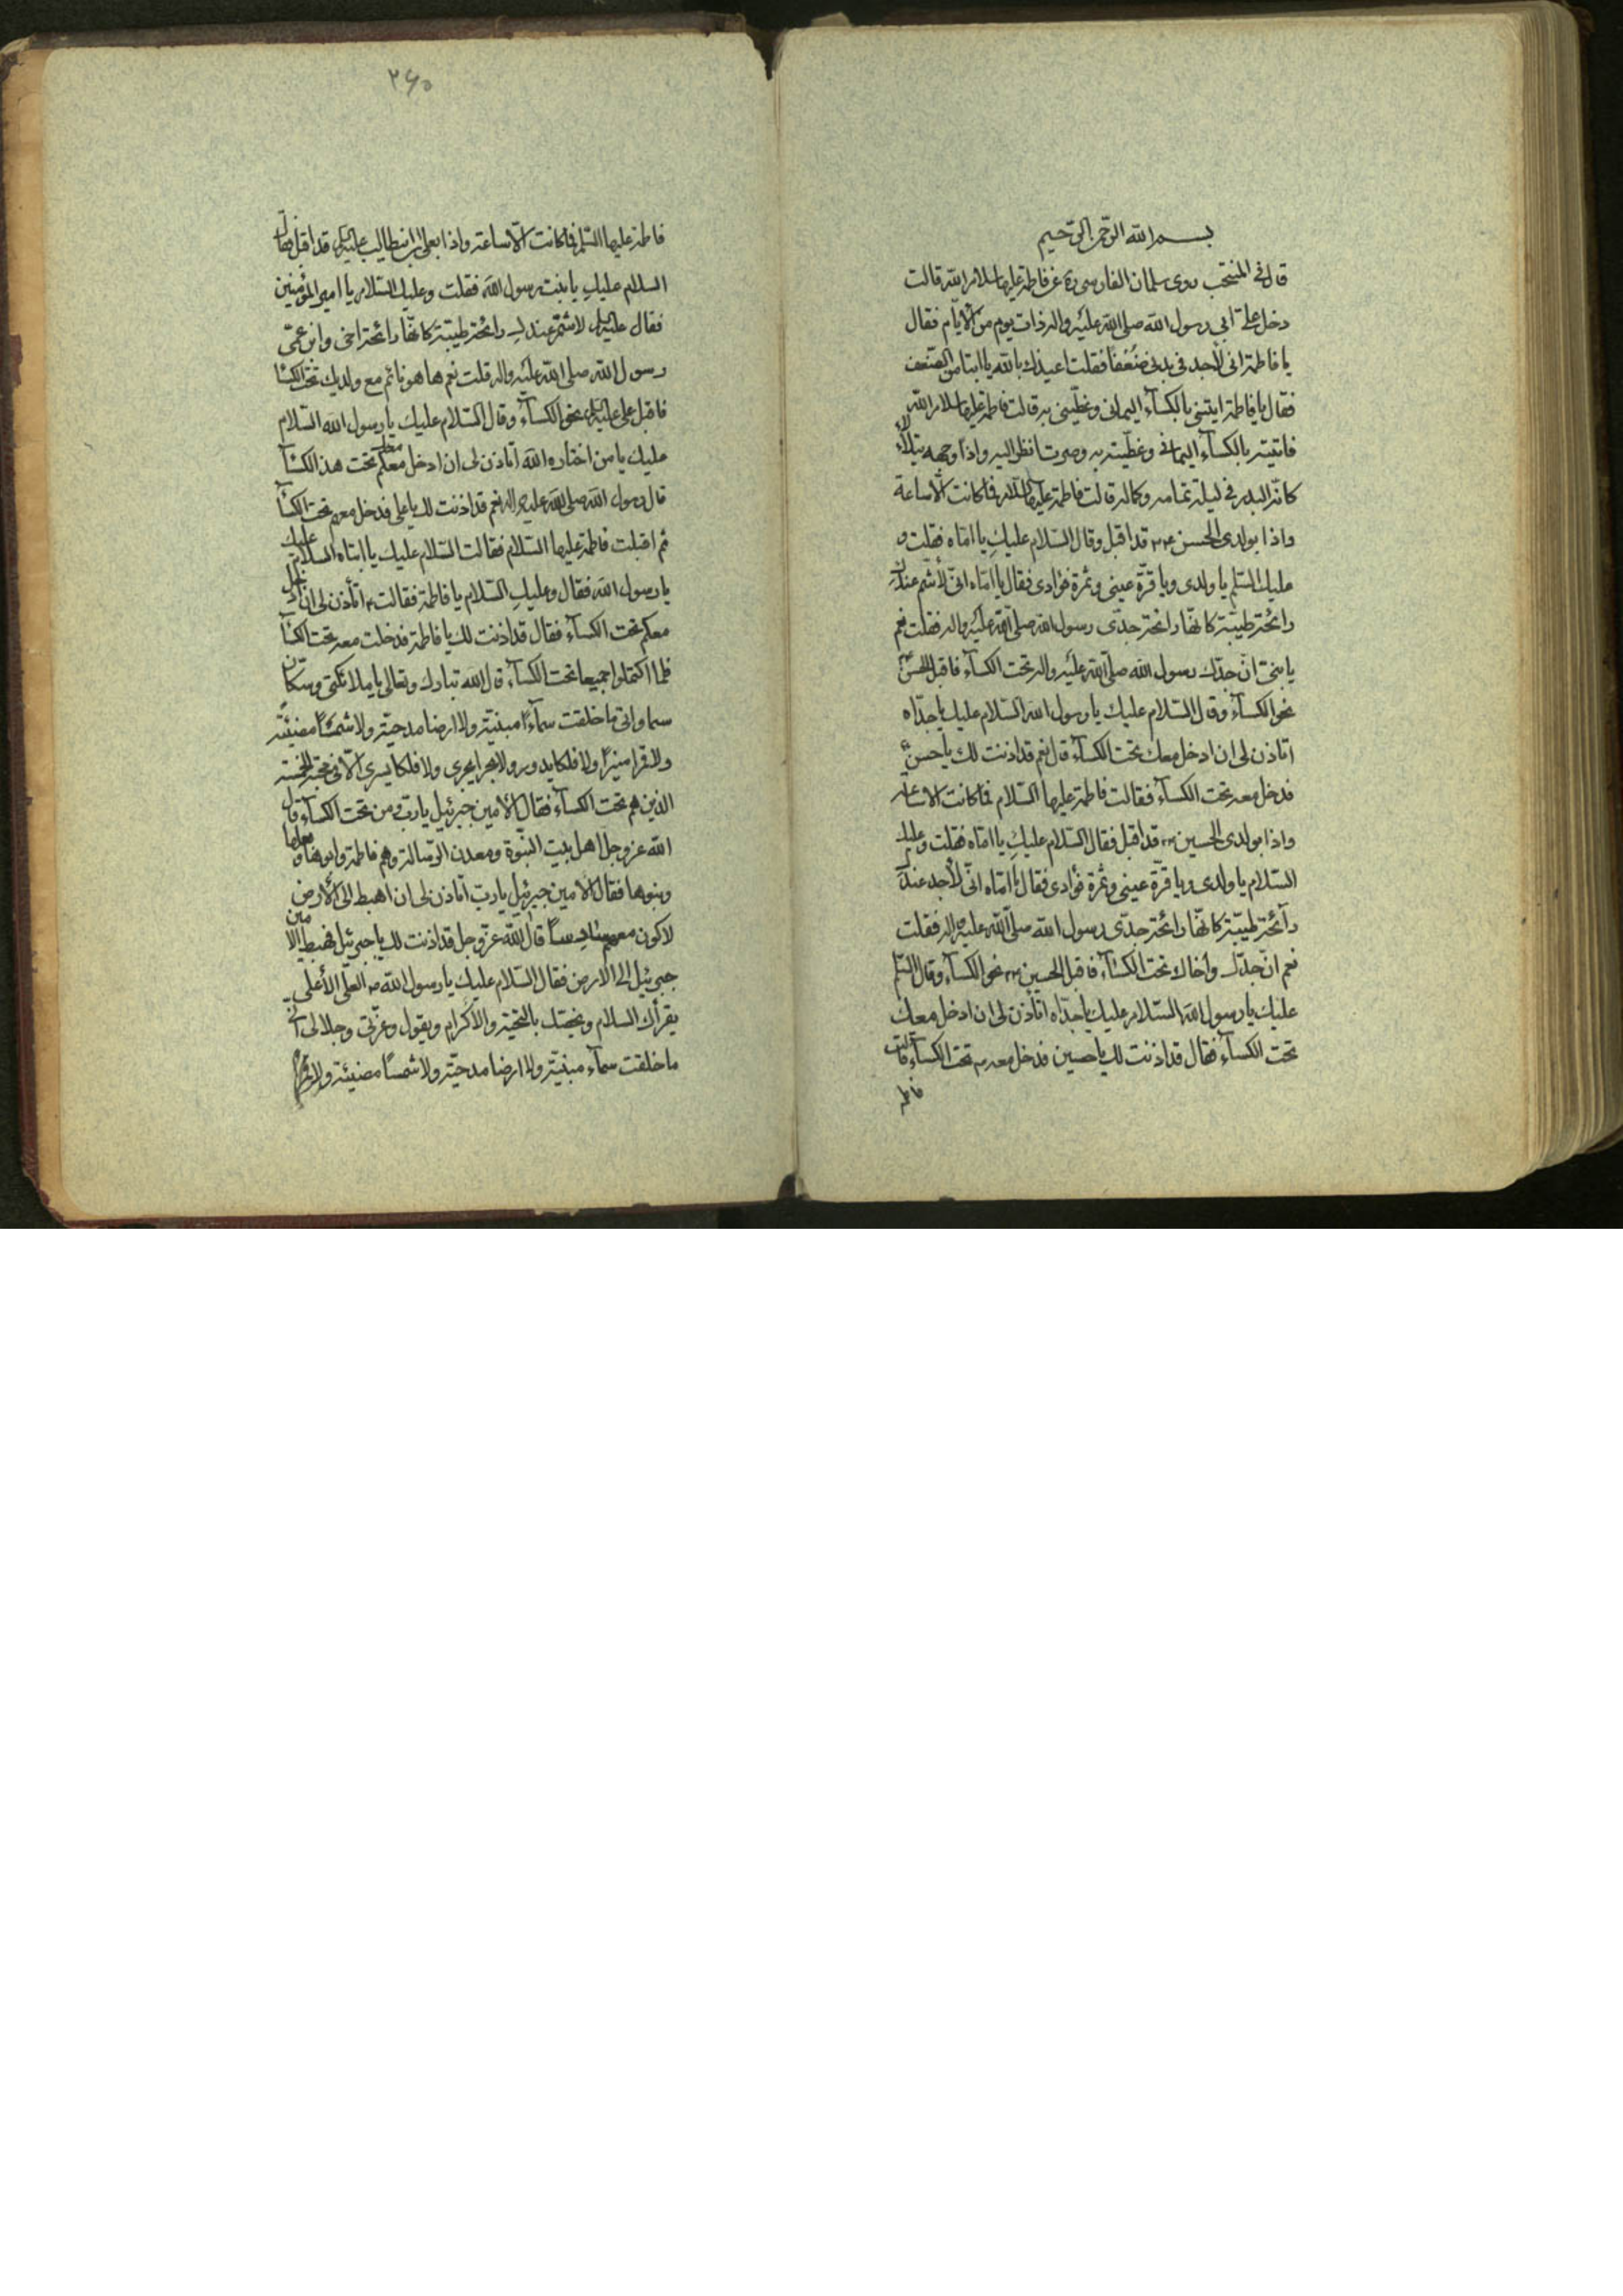 بسم الله الرحمن الرحيم
قال في المنتخب روى سلمان الفارسي ره عن فاطمة عليها سلام الله قالت
دخل علىّ ابي رسول الله صلى الله عليه واله ذات يوم من الأيام فقال
يا فاطمة انى لأجد فى بدنى ضُعْفًا فقلت اعيذك بالله يا ابتا من الضعف
فقال يا فاطمة ايتينى بالكسآء اليمانى وغطّينى به قالت فاطمة عليها سلام الله
فاتيته بالكسآء اليمانى وغطّيته به وصرت انظر اليه واذا وجهه يتلألأ
كانّه البدر فى ليلة تمامه وكماله قالت فاطمة عليها السلام فما كانت الّا ساعة
واذا بولدى الحسن قد اقبل وقال السّلام عليكِ يا امّاه فقلت و
عليك السّلم يا ولدى ويا قرّة عينى وثمرة فؤادى فقال يا امّاه انّى لأشمّ عندكِ
رائحة طيّبة كانّها رائحة جدّى رسول الله صلى الله عليه واله فقلت نعم
يا بنىّ انّ جدّك رسول الله صلى الله عليه واله تحت الكسآء فاقبل الحسن
نحو الكسآء وقال السّلام عليك يا رسول الله السّلام عليك يا جدّاه
اتاذن لى ان ادخل معك تحت الكسآء قال نعم قد اذنت لك يا حسن
فدخل معه تحت الكسآء فقالت فاطمة عليها السّلام فما كانت الا ساعة
واذا بولدى الحسين قد اقبل فقال السّلام عليكِ يا امّاه فقلت وعليك
السّلام يا ولدى ويا قرّة عينى وثمرة فؤادى فقال يا امّاه انّى لأجد عندك
رآئحة طيّبة كانّها رائحة جدّى رسول الله صلّى الله عليه واله فقلت
نعم انّ جدّك واخاك تحت الكسآء فاقبل الحسين نحو الكسآء وقال السّلم
عليك يا رسول الله السّلام عليك يا جدّاه اتأذن لى ان ادخل معك
تحت الكسآء فقال قد اذنت لك يا حسين فدخل معه تحت الكسآء قالت
فاطمة
٢٦٥
فاطمة عليها السّلم فما كانت الّا ساعة واذا بعلى ابن ابيطالب قد اقبل فقال
السلام عليكِ يا بنت رسول الله فقلت وعليك السّلام يا امير المؤمنين
فقال لاشمّ عندكِ رائحة طيّبة كانّها رائحة اخى وابن عمّى
رسول الله صلى الله عليه واله قلت نعم ها هو نائم مع ولديك تحت الكسا
فاقبل على نحو الكسآء وقال السّلام عليك يا رسول الله السّلام
عليك يا من اختاره الله اتاذن لى ان ادخل معكم تحت هذ الكسآ
قال رسول الله صلى الله عليه واله نعم قد اذنت لك يا على فدخل معهم تحت الكسآ
ثم اقبلت فاطمة عليها السّلام فقالت السّلام عليك يا ابتاه السلام عليك
يا رسول الله فقال وعليكِ السّلام يا فاطمة فقالت اتأذن لى ان ادخل
معكم تحت الكسآء فقال قد اذنت لك يا فاطمة فدخلت معه تحت الكسآ
فلما اكتملوا جميعا تحت الكسآء قال الله تبارك وتعالى يا ملائكتى وسكّان
سماواتى ما خلقت سمآءً مبنيّة ولا ارضا مدحيّة ولا شمسًا مضيئة
ولا قمرا منيرًا ولا فلكا يدور ولا بحرا يجرى ولا فلكا يسرى الّا فى محبّة الخمسة
الذين هم تحت الكسآء فقال الأمين جبرئيل يا ربّ ومن تحت الكسآء قال
الله عزوجل اهل بيت النبّوة ومعدن الرّسالة وهم فاطمة وابوها وبعلها
وبنوها فقال الامين جبرئيل يا ربّ اتاذن لى ان اهبط الى الأرض
لاكون معهم سادسًا قال الله عزّوجل قد اذنت لك يا جبرئيل فهبط الامين
جبرئيل الى الارض فقال السّلام عليك يا رسول الله العلى الأعلى
يقرأك السلام ويخصّك بالتحيّة والأكرام ويقول وعزّتى وجلالى انّى
ما خلقت سمآء مبنيّة ولا ارضا مدحيّة ولا شمسًا مضيئة ولا قمرا